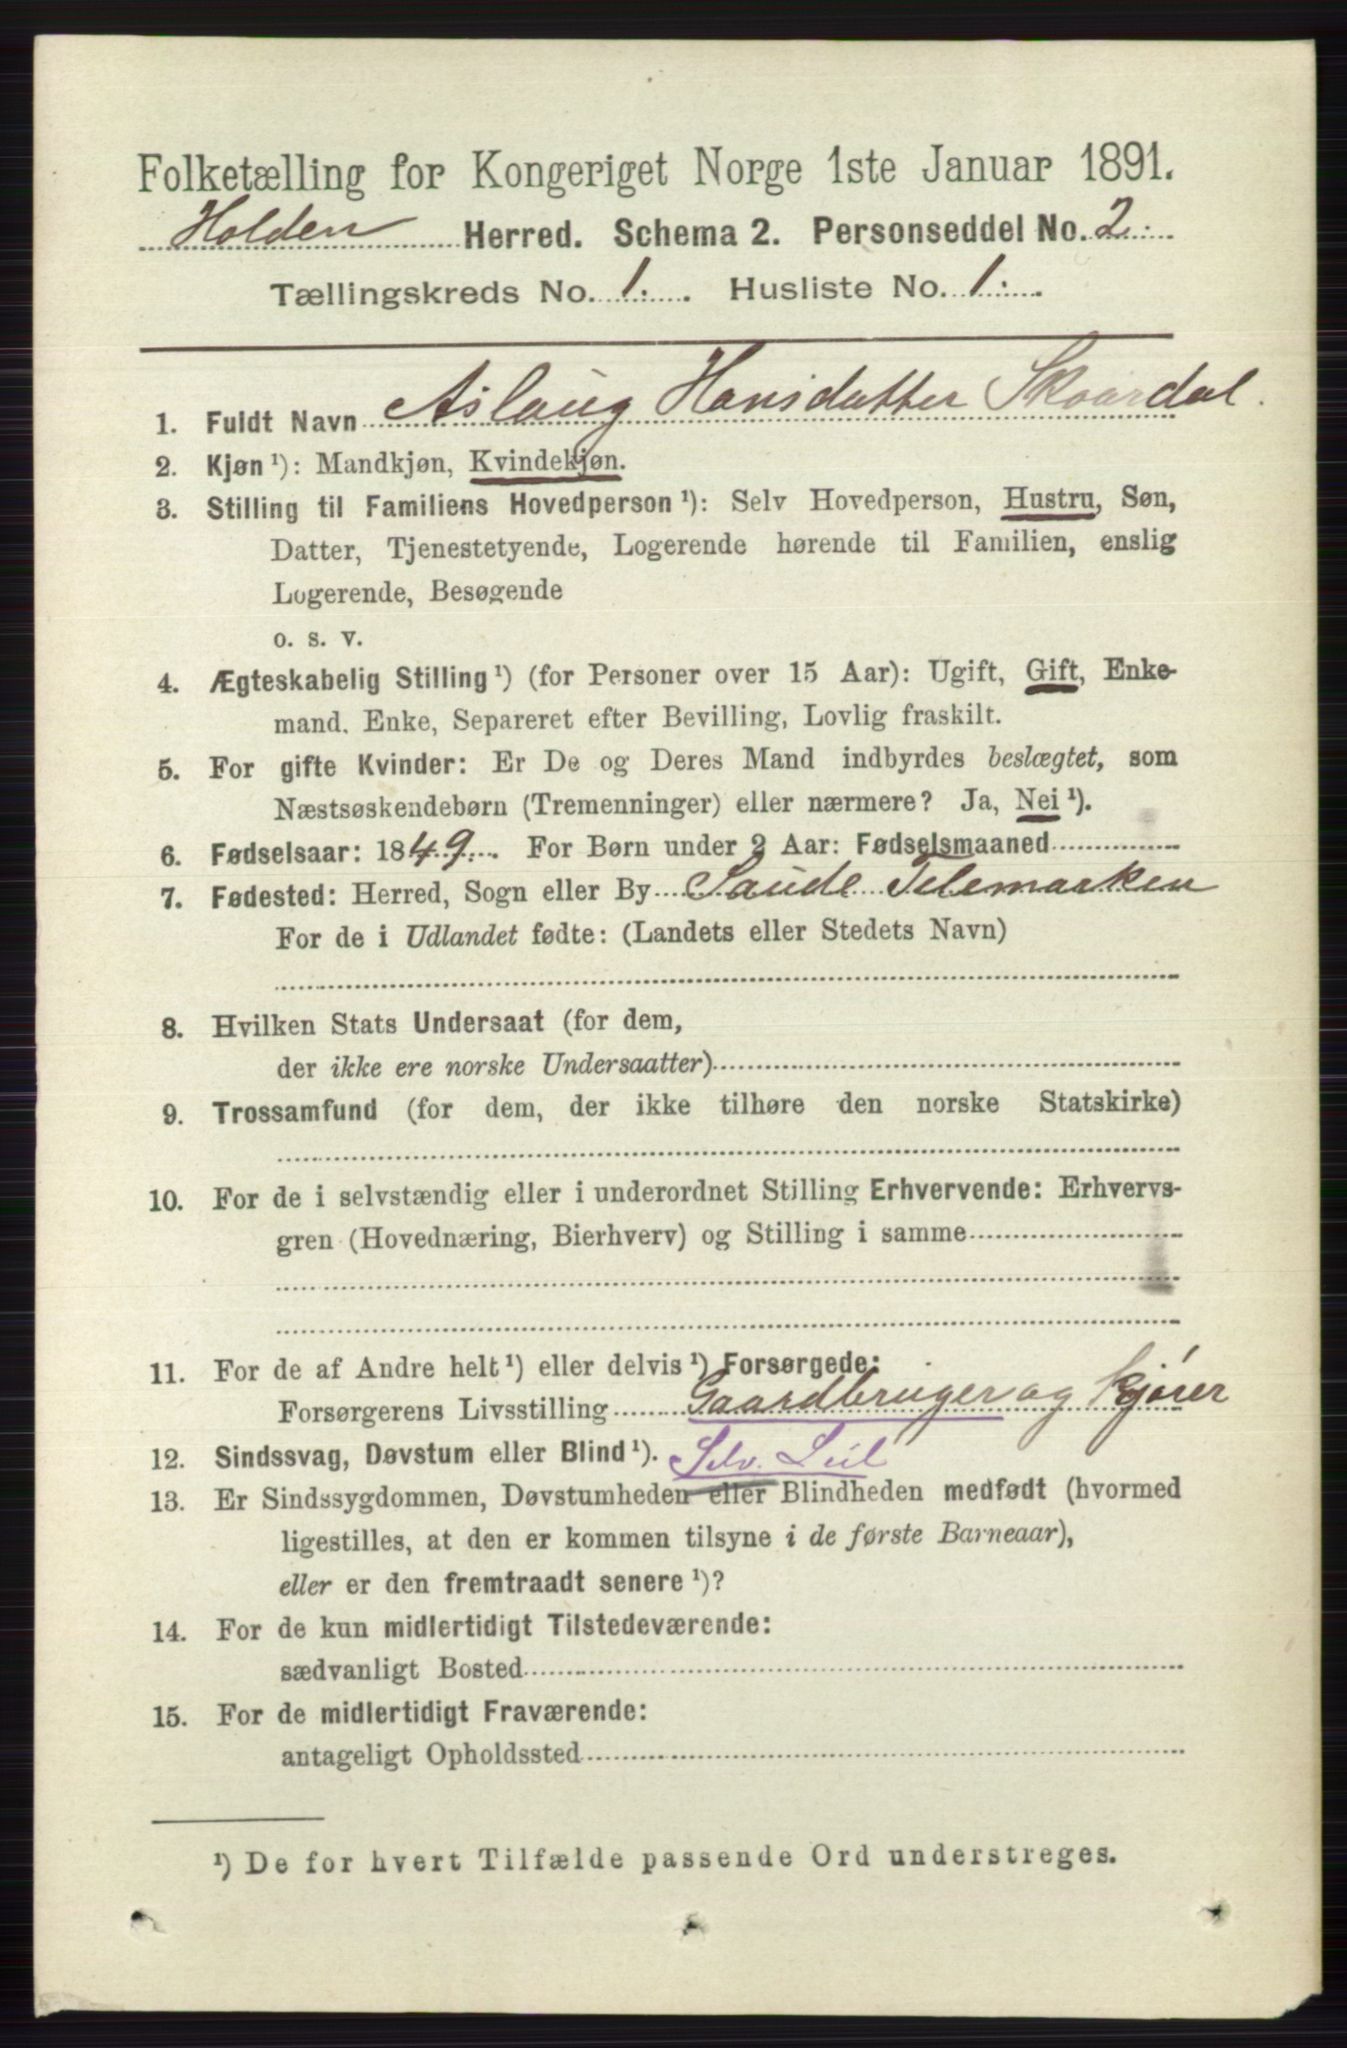 Folketælling for Kongeriget Norge 1ste Januar 1891.
Holden Herred. Schema 2. Personseddel No. 2.
Tællingskreds No. 1. Husliste No. 1.
1. Fuldt Navn Aslaug Hansdatter Skaardal.
2. Kjøn ¹): Mandkjøn, Kvindekjøn.
3. Stilling til Familiens Hovedperson ¹): Selv Hovedperson, Hustru, Søn,
Datter, Tjenestetyende, Logerende hørende til Familien, enslig
Logerende, Besøgende
o. s. v.
4. Ægteskabelig Stilling ¹) (for Personer over 15 Aar): Ugift, Gift, Enke-
mand, Enke, Separeret efter Bevilling, Lovlig fraskilt.
5. For gifte Kvinder: Er De og Deres Mand indbyrdes beslægtet, som
Næstsøskendebørn (Tremenninger) eller nærmere? Ja, Nei ¹).
6. Fødselsaar: 1849. For Børn under 2 Aar: Fødselsmaaned
7. Fødested: Herred, Sogn eller By Saude Telemarken
For de i Udlandet fødte: (Landets eller Stedets Navn)
8. Hvilken Stats Undersaat (for dem,
der ikke ere norske Undersaatter)
9. Trossamfund (for dem, der ikke tilhøre den norske Statskirke)
10. For de i selvstændig eller i underordnet Stilling Erhvervende: Erhvervs-
gren (Hovednæring, Bierhverv) og Stilling i samme
11. For de af Andre helt ¹) eller delvis ¹) Forsørgede:
Forsørgerens Livsstilling Gaardbruger og Kjører
12. Sindssvag, Døvstum eller Blind ¹). Selv. Leil
13. Er Sindssygdommen, Døvstumheden eller Blindheden medfødt (hvormed
ligestilles, at den er kommen tilsyne i de første Barneaar),
eller er den fremtraadt senere ¹)?
14. For de kun midlertidigt Tilstedeværende:
sædvanligt Bosted
15. For de midlertidigt Fraværende:
antageligt Opholdssted
¹) De for hvert Tilfælde passende Ord understreges.